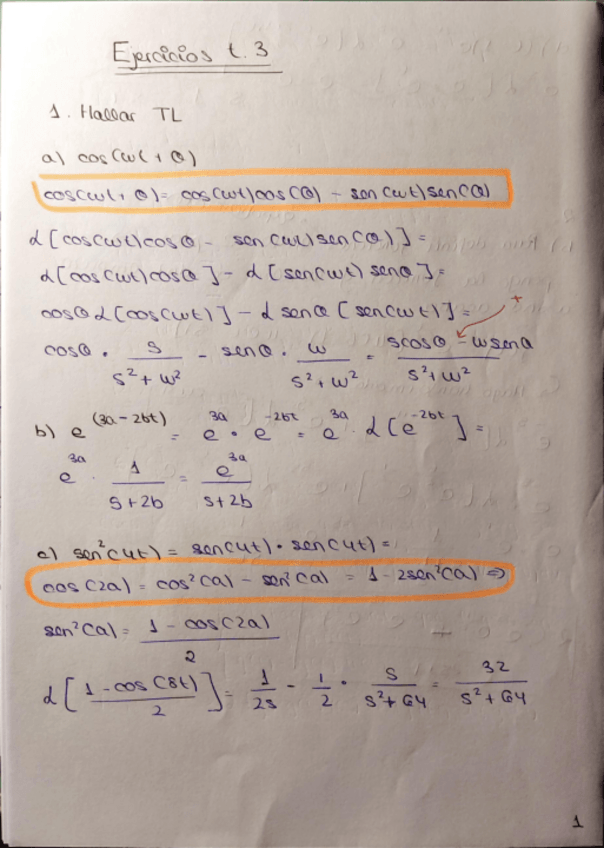 Ejercicios t. 3
1. Hallar TL
a) cos(wt + θ)
cos(wt + θ) = cos(wt)cos(θ) - sen(wt)sen(θ)
L[cos(wt)cosθ - sen(wt)sen(θ)] =
L[cos(wt)cosθ] - L[sen(wt) senθ] =
cosθ L[cos(wt)] - L senθ [sen(wt)] =
+
cosθ · s/(s²+w²) - senθ · w/(s²+w²) = (scosθ - wsenθ)/(s²+w²)
b) e^(3a-2bt) = e^3a · e^-2bt = e^3a · L[e^-2bt] =
e^3a · 1/(s+2b) = e^3a/(s+2b)
c) sen²(4t) = sen(4t) · sen(4t) =
cos(2a) = cos²(a) - sen²(a) = 1 - 2sen²(a) ⇒
sen²(a) = (1 - cos(2a))/2
L[(1-cos(8t))/2] = 1/2s - 1/2 · s/(s²+64) = 32/(s²+64)
1